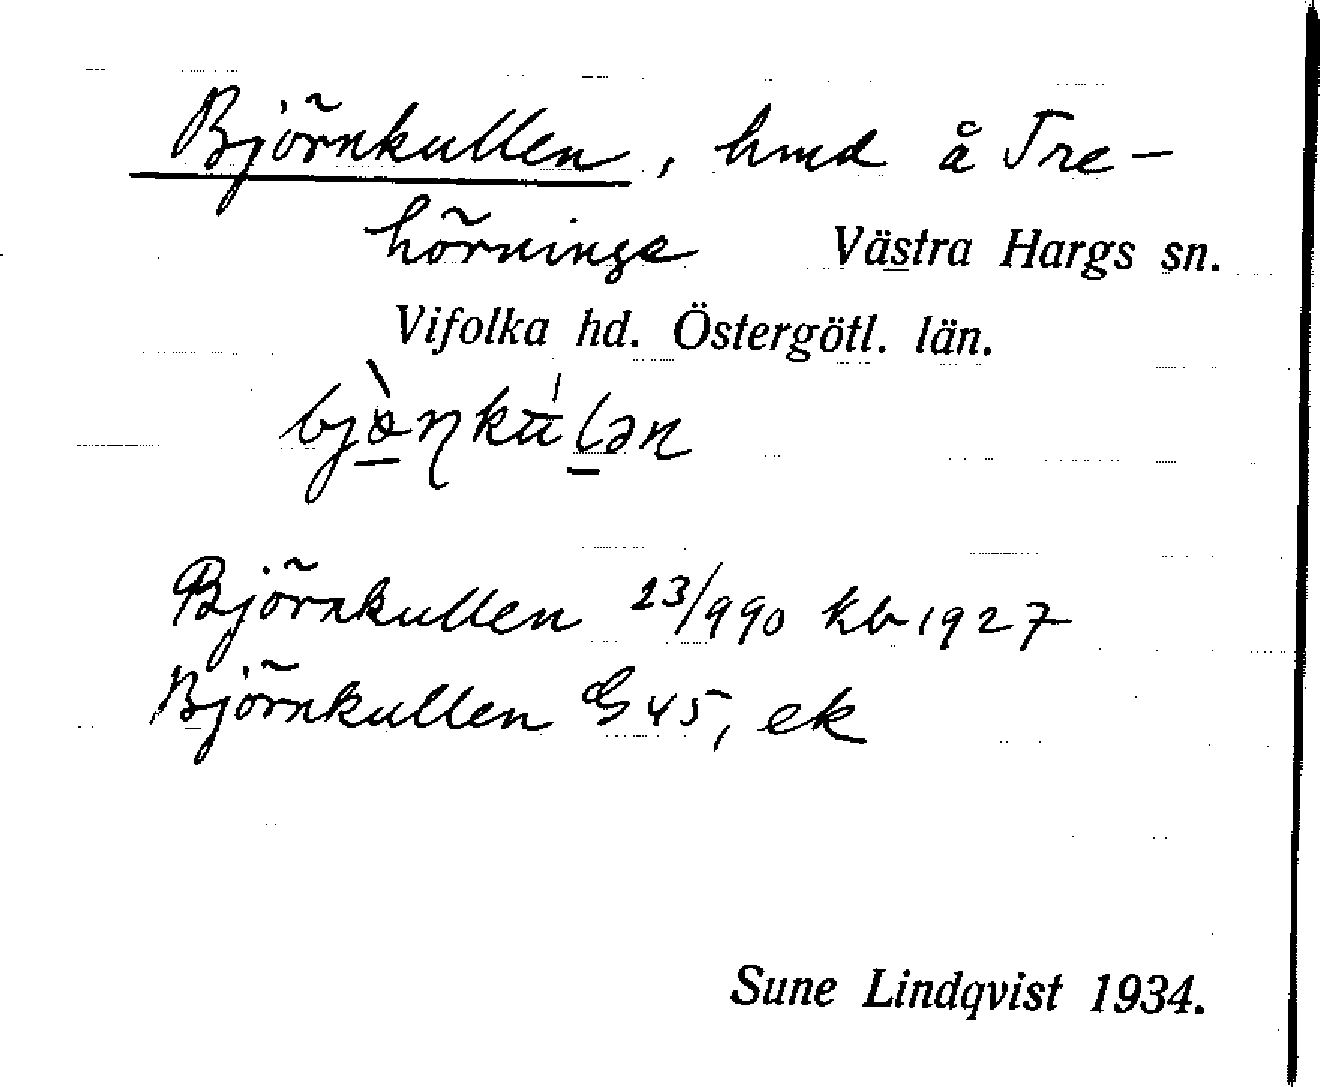 Björnkullen, hmd å Tre-
hörninge Västra Hargs sn.
Vifolka hd. Östergötl. län.
Björnkullen 23/990 kb 1927
Björnkullen G 45, ek
Sune Lindqvist 1934.